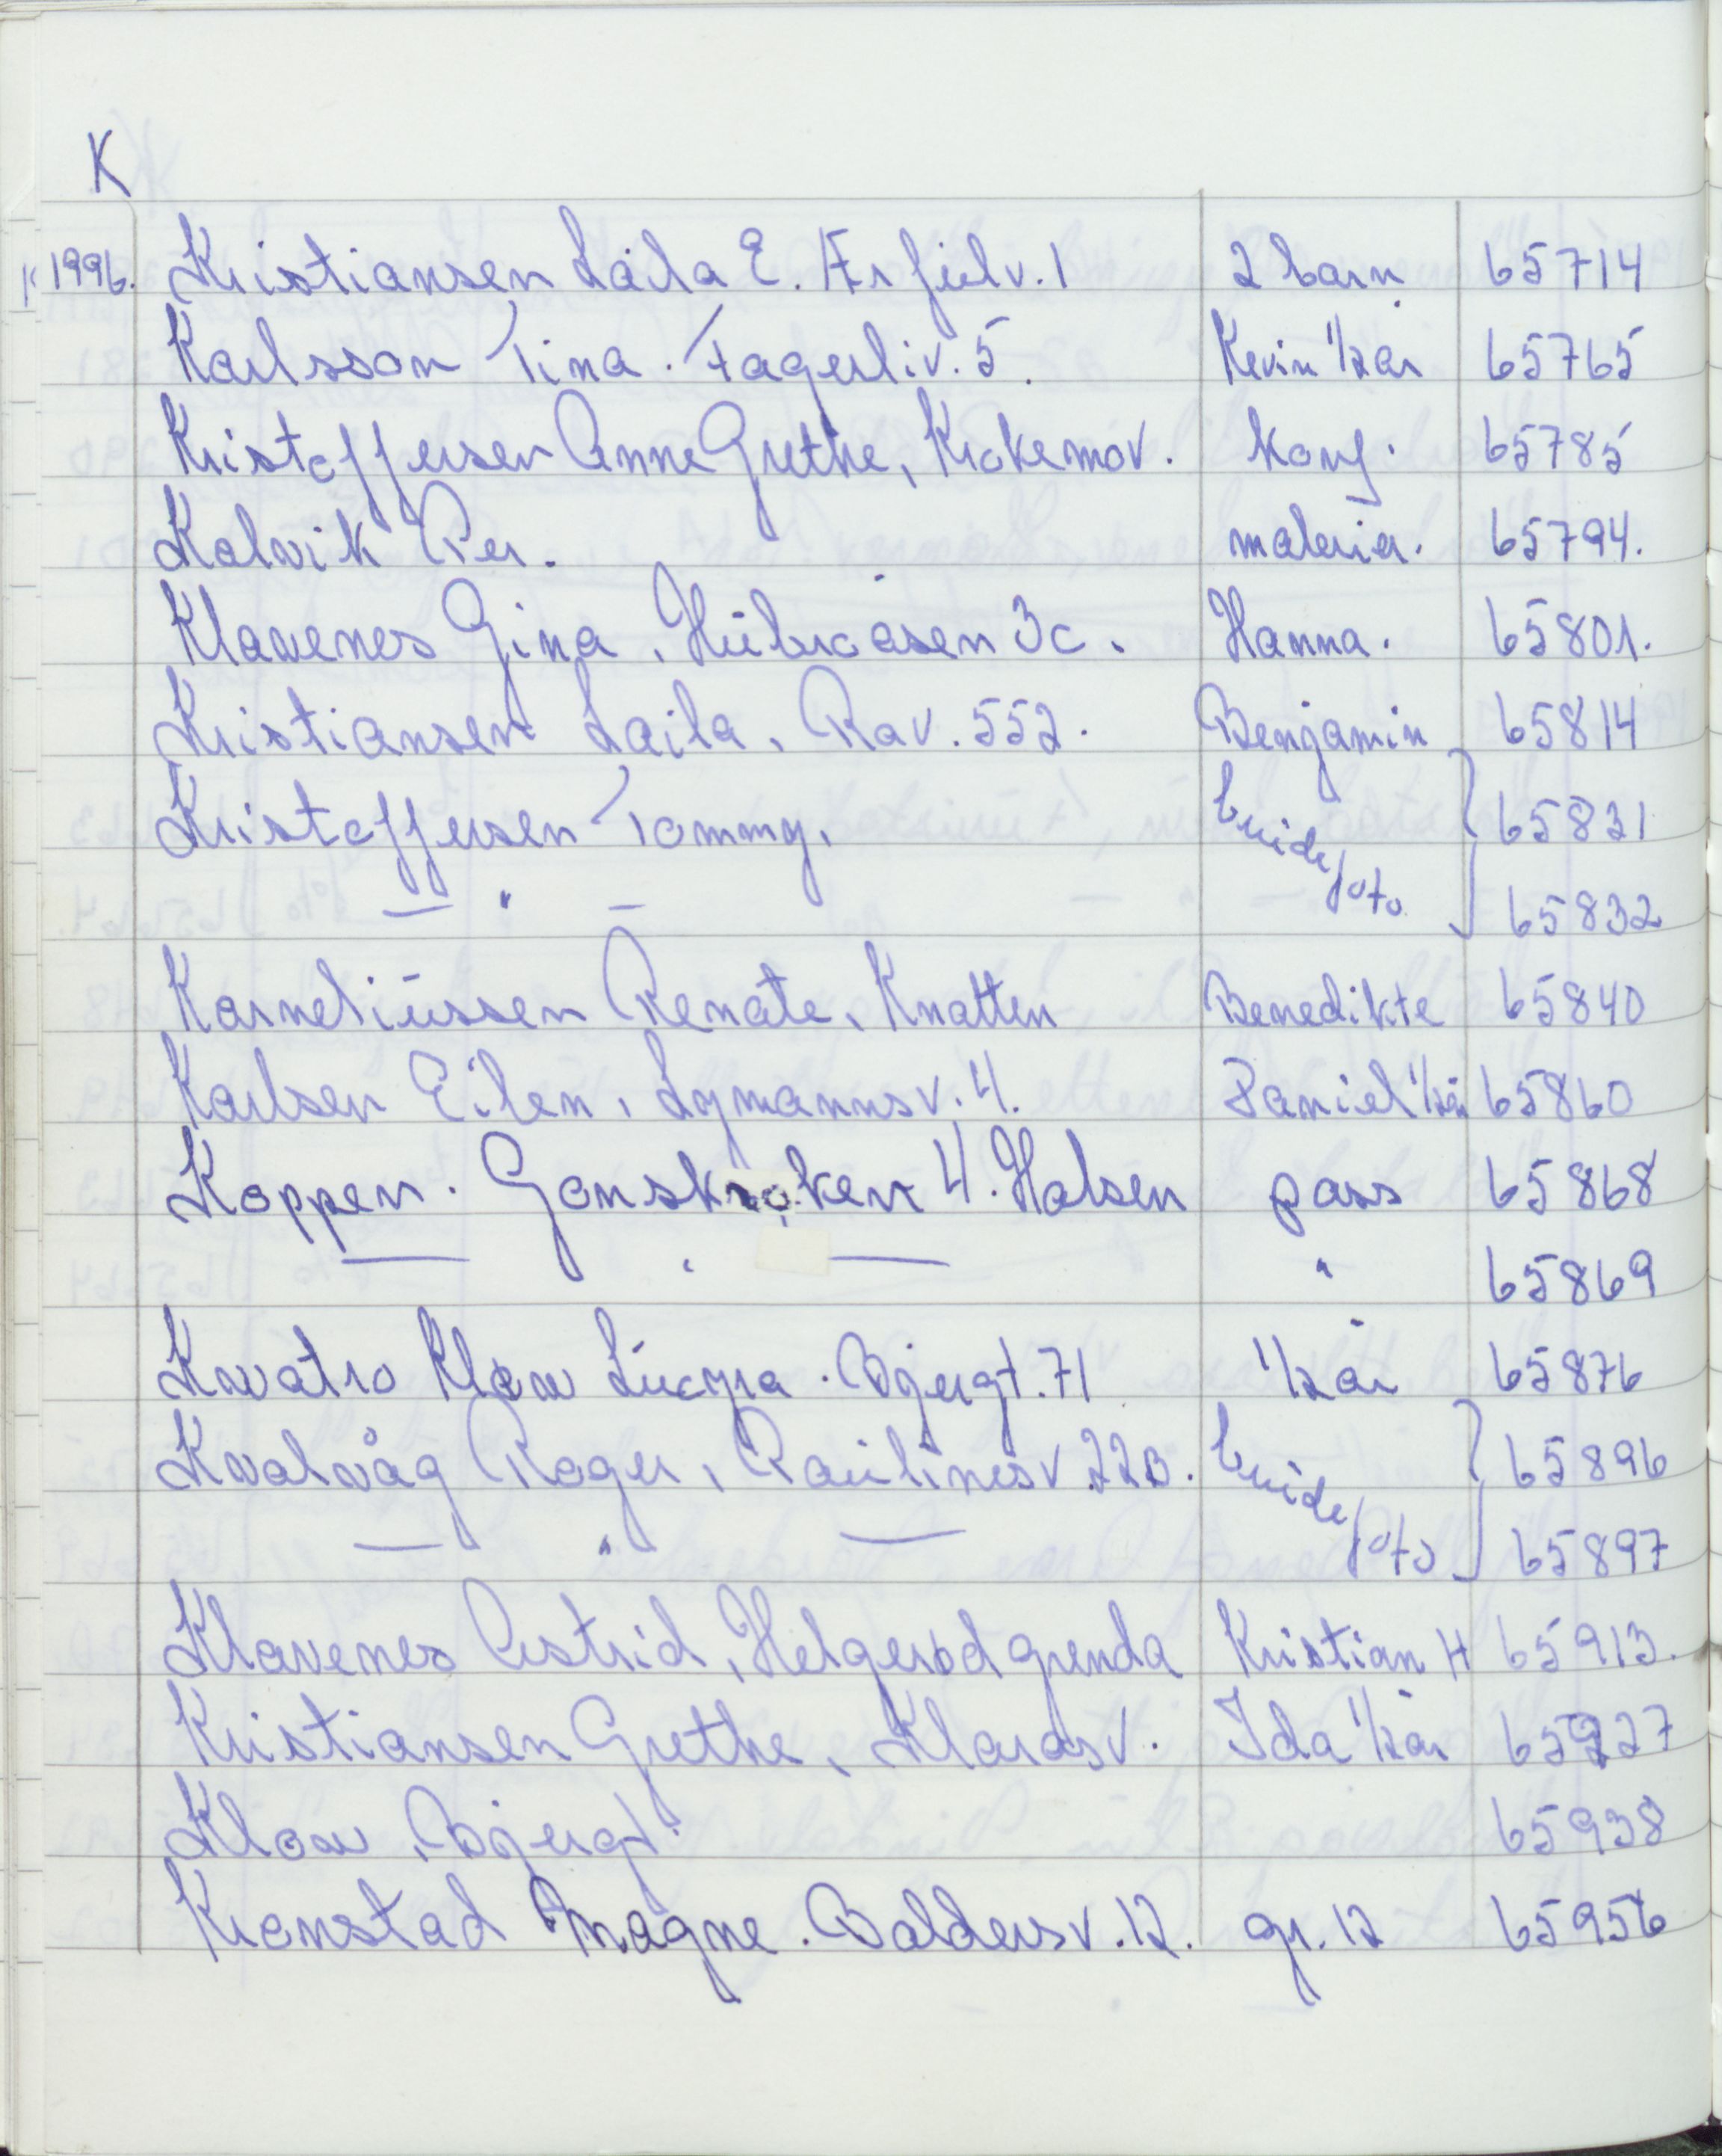 K
1996. Kristiansen Laila E. Furfuruv. 1 2 barn 65714
Karlsson Tina. Fagerliv. 5. Kevin 1/2 år 65765
Kristoffersen Anne Grethe, Krokemov. konf. 65785
Kolvik Per. malerier. 65794.
Klavenes Gina, Hübroåsen 3c. Hanna. 65801.
Kristiansen Laila, Rav. 552. Benjamin 65814
Kristoffersen Tommy, brude/foto 65831
— " — 65832
Korneliussen Renate, Knatten Benedikte 65840
Karlsen Eilen, Lymannsv. 4. Daniel 1/2 år 65860
Koppen. Gonskroken 4. Halsen pass 65868
— " — " 65869
Kvatro Klow Lucyra. Bjergt. 71 1/2 år 65876
Kvalvåg Roger, Paulinesv 22B. brude/foto 65896
— " — 65897
Klavenes Astrid, Helgerød grenda Kristian H 65913.
Kristiansen Grethe, Klarasv. Ida 1/2 år 65927
Klow, Bjergt. 65938
Kronstad Magne. Boldersv. 12. gr. 12 65956